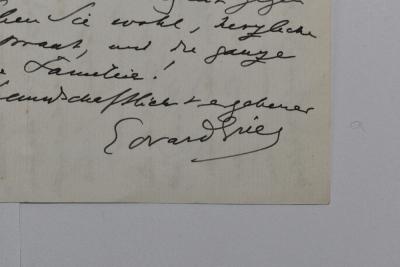 Sie wohl, herzliche
und die ganze
Familie!
freundschaftlichst ergebener
Edvard Grieg